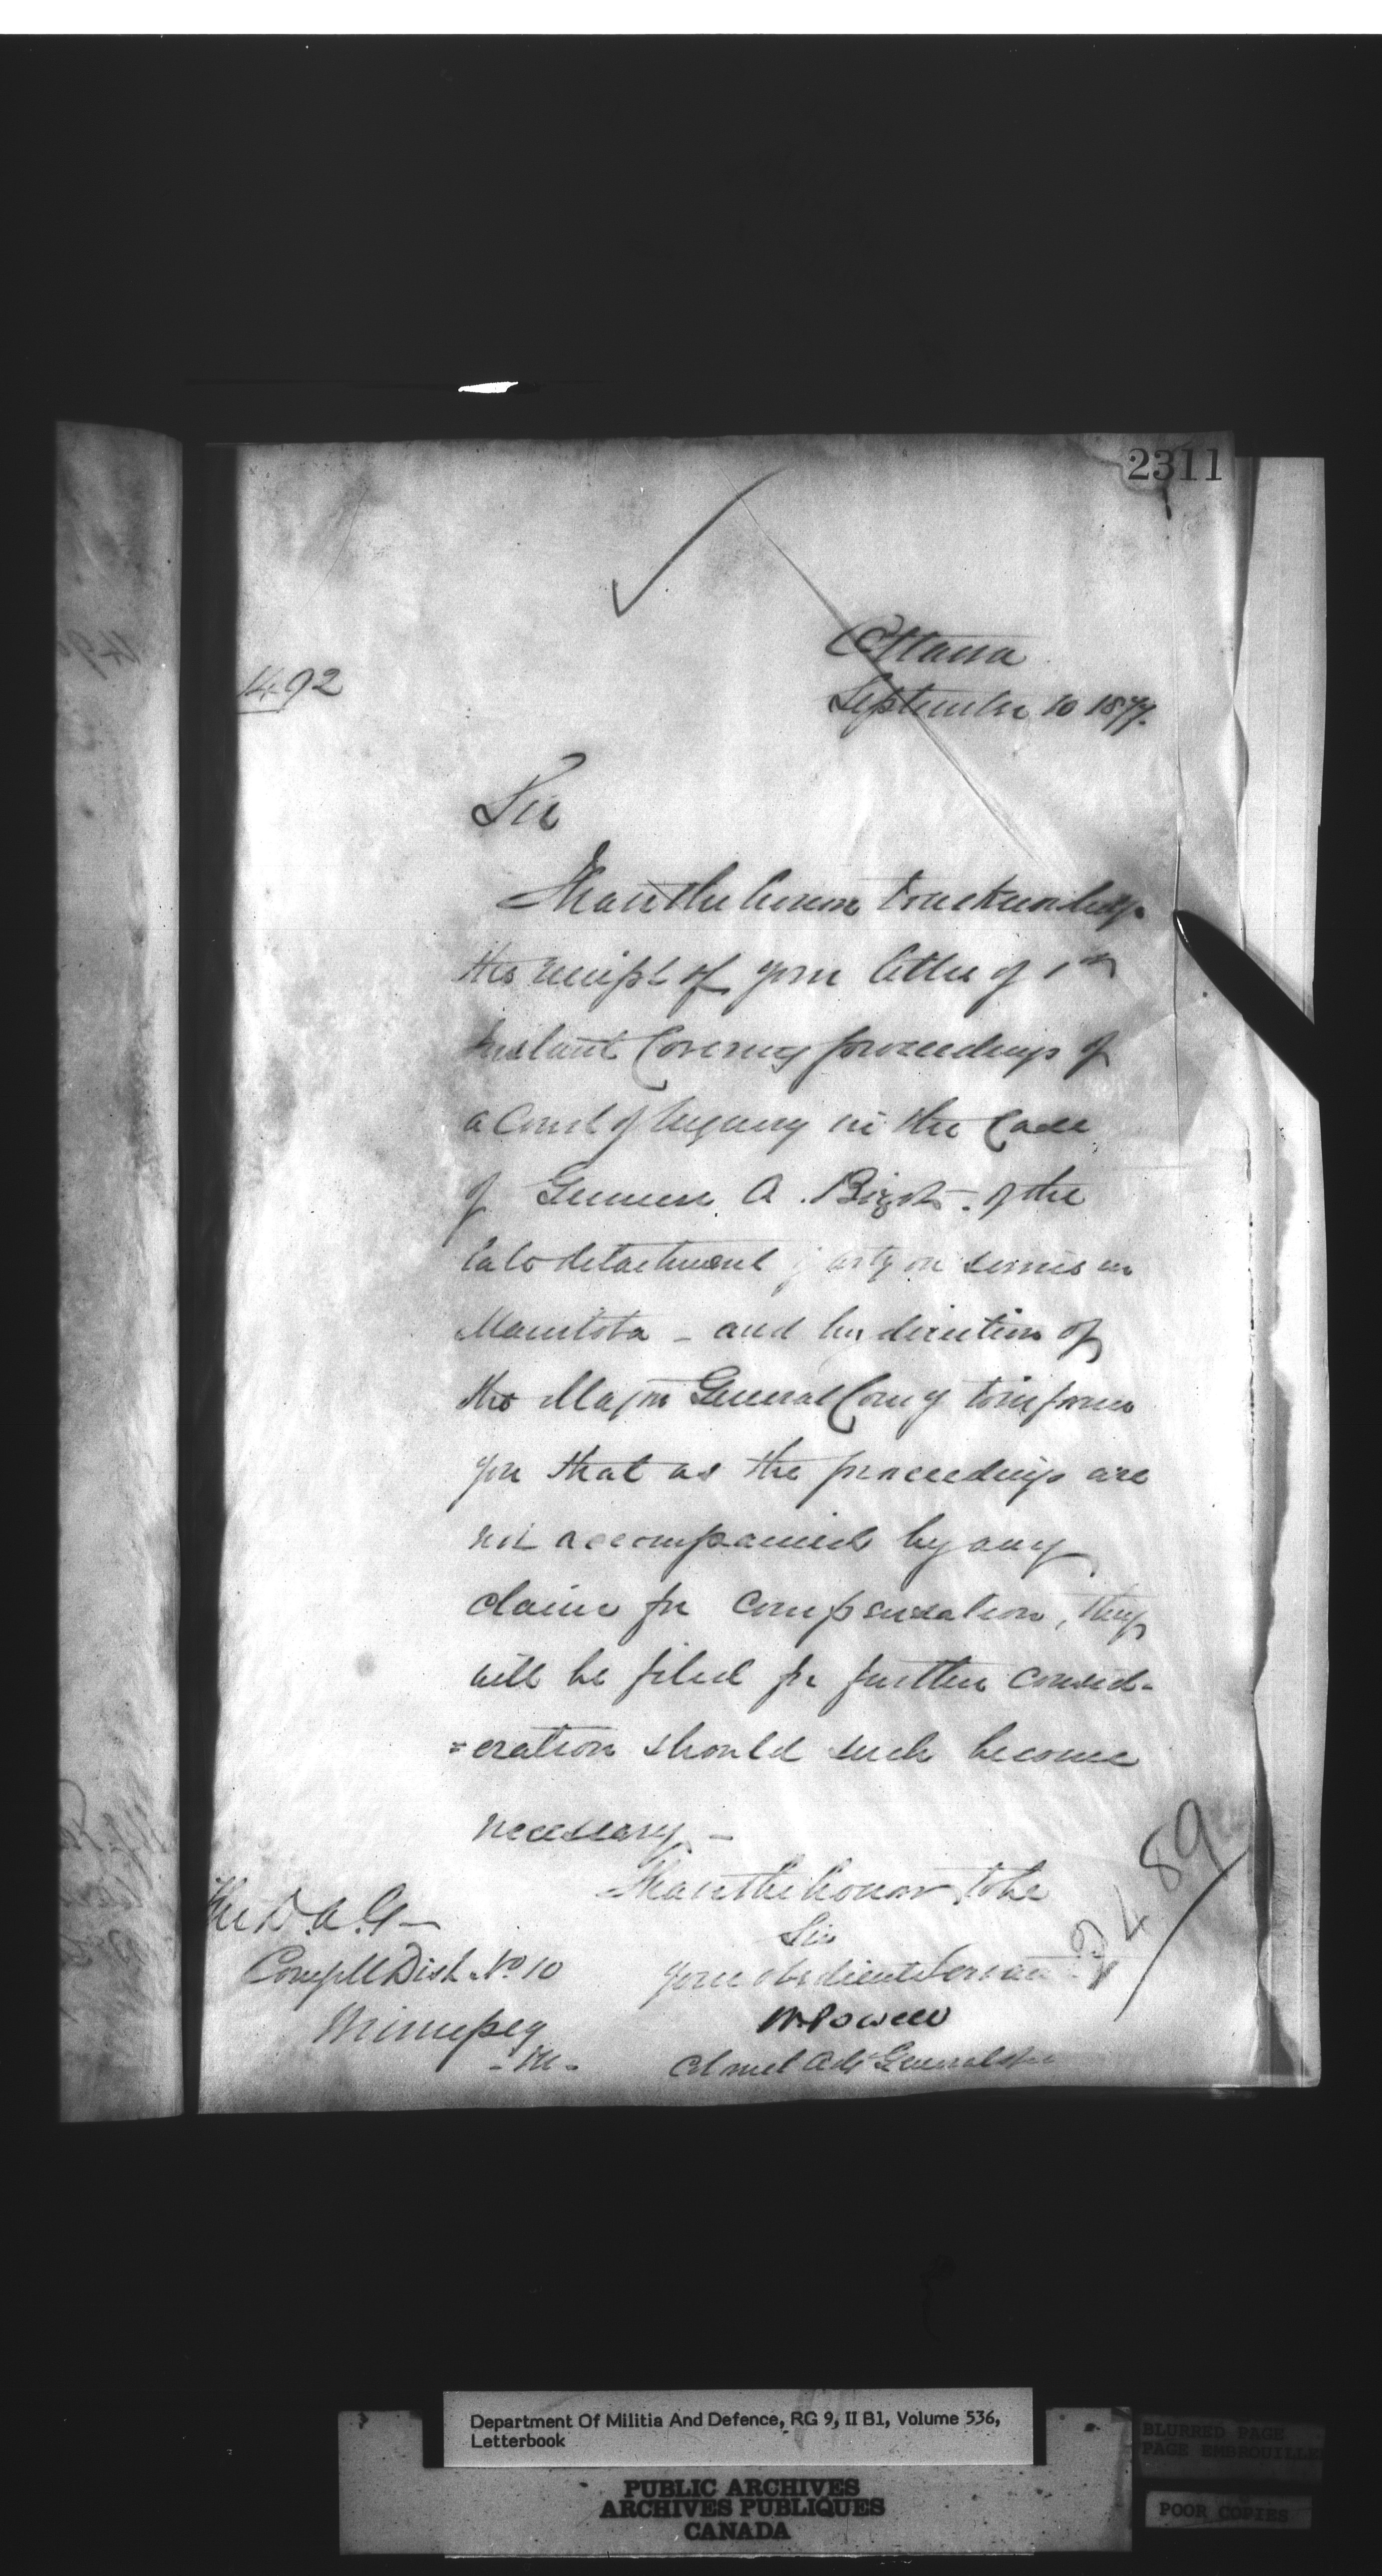 2311
Ottawa
1492
September 10 1877.
Sir
I have the honor to acknowledge
the receipt of your letter of 1st
Instant Covering proceedings of
a Court of Inquiry in the Case
of Gunner A. of the
late detachment of arty on service in
Manitoba - and by direction of
the Major General Comg to inform
you that as the proceedings are
not accompanied by any
claim for compensation, they
will be filed for further consid-
=eration should such become
necessary -
I have the honor to be
Sir
your obedient Servant
W Powell
Colonel Adjt General
The D.A.G -
Dist. No 10
Winnipeg
- M -
89
Department Of Militia And Defence, RG 9, II B1, Volume 536,
Letterbook
PUBLIC ARCHIVES
ARCHIVES PUBLIQUES
CANADA
BLURRED PAGE
PAGE EMBROUILLE
POOR COPIES